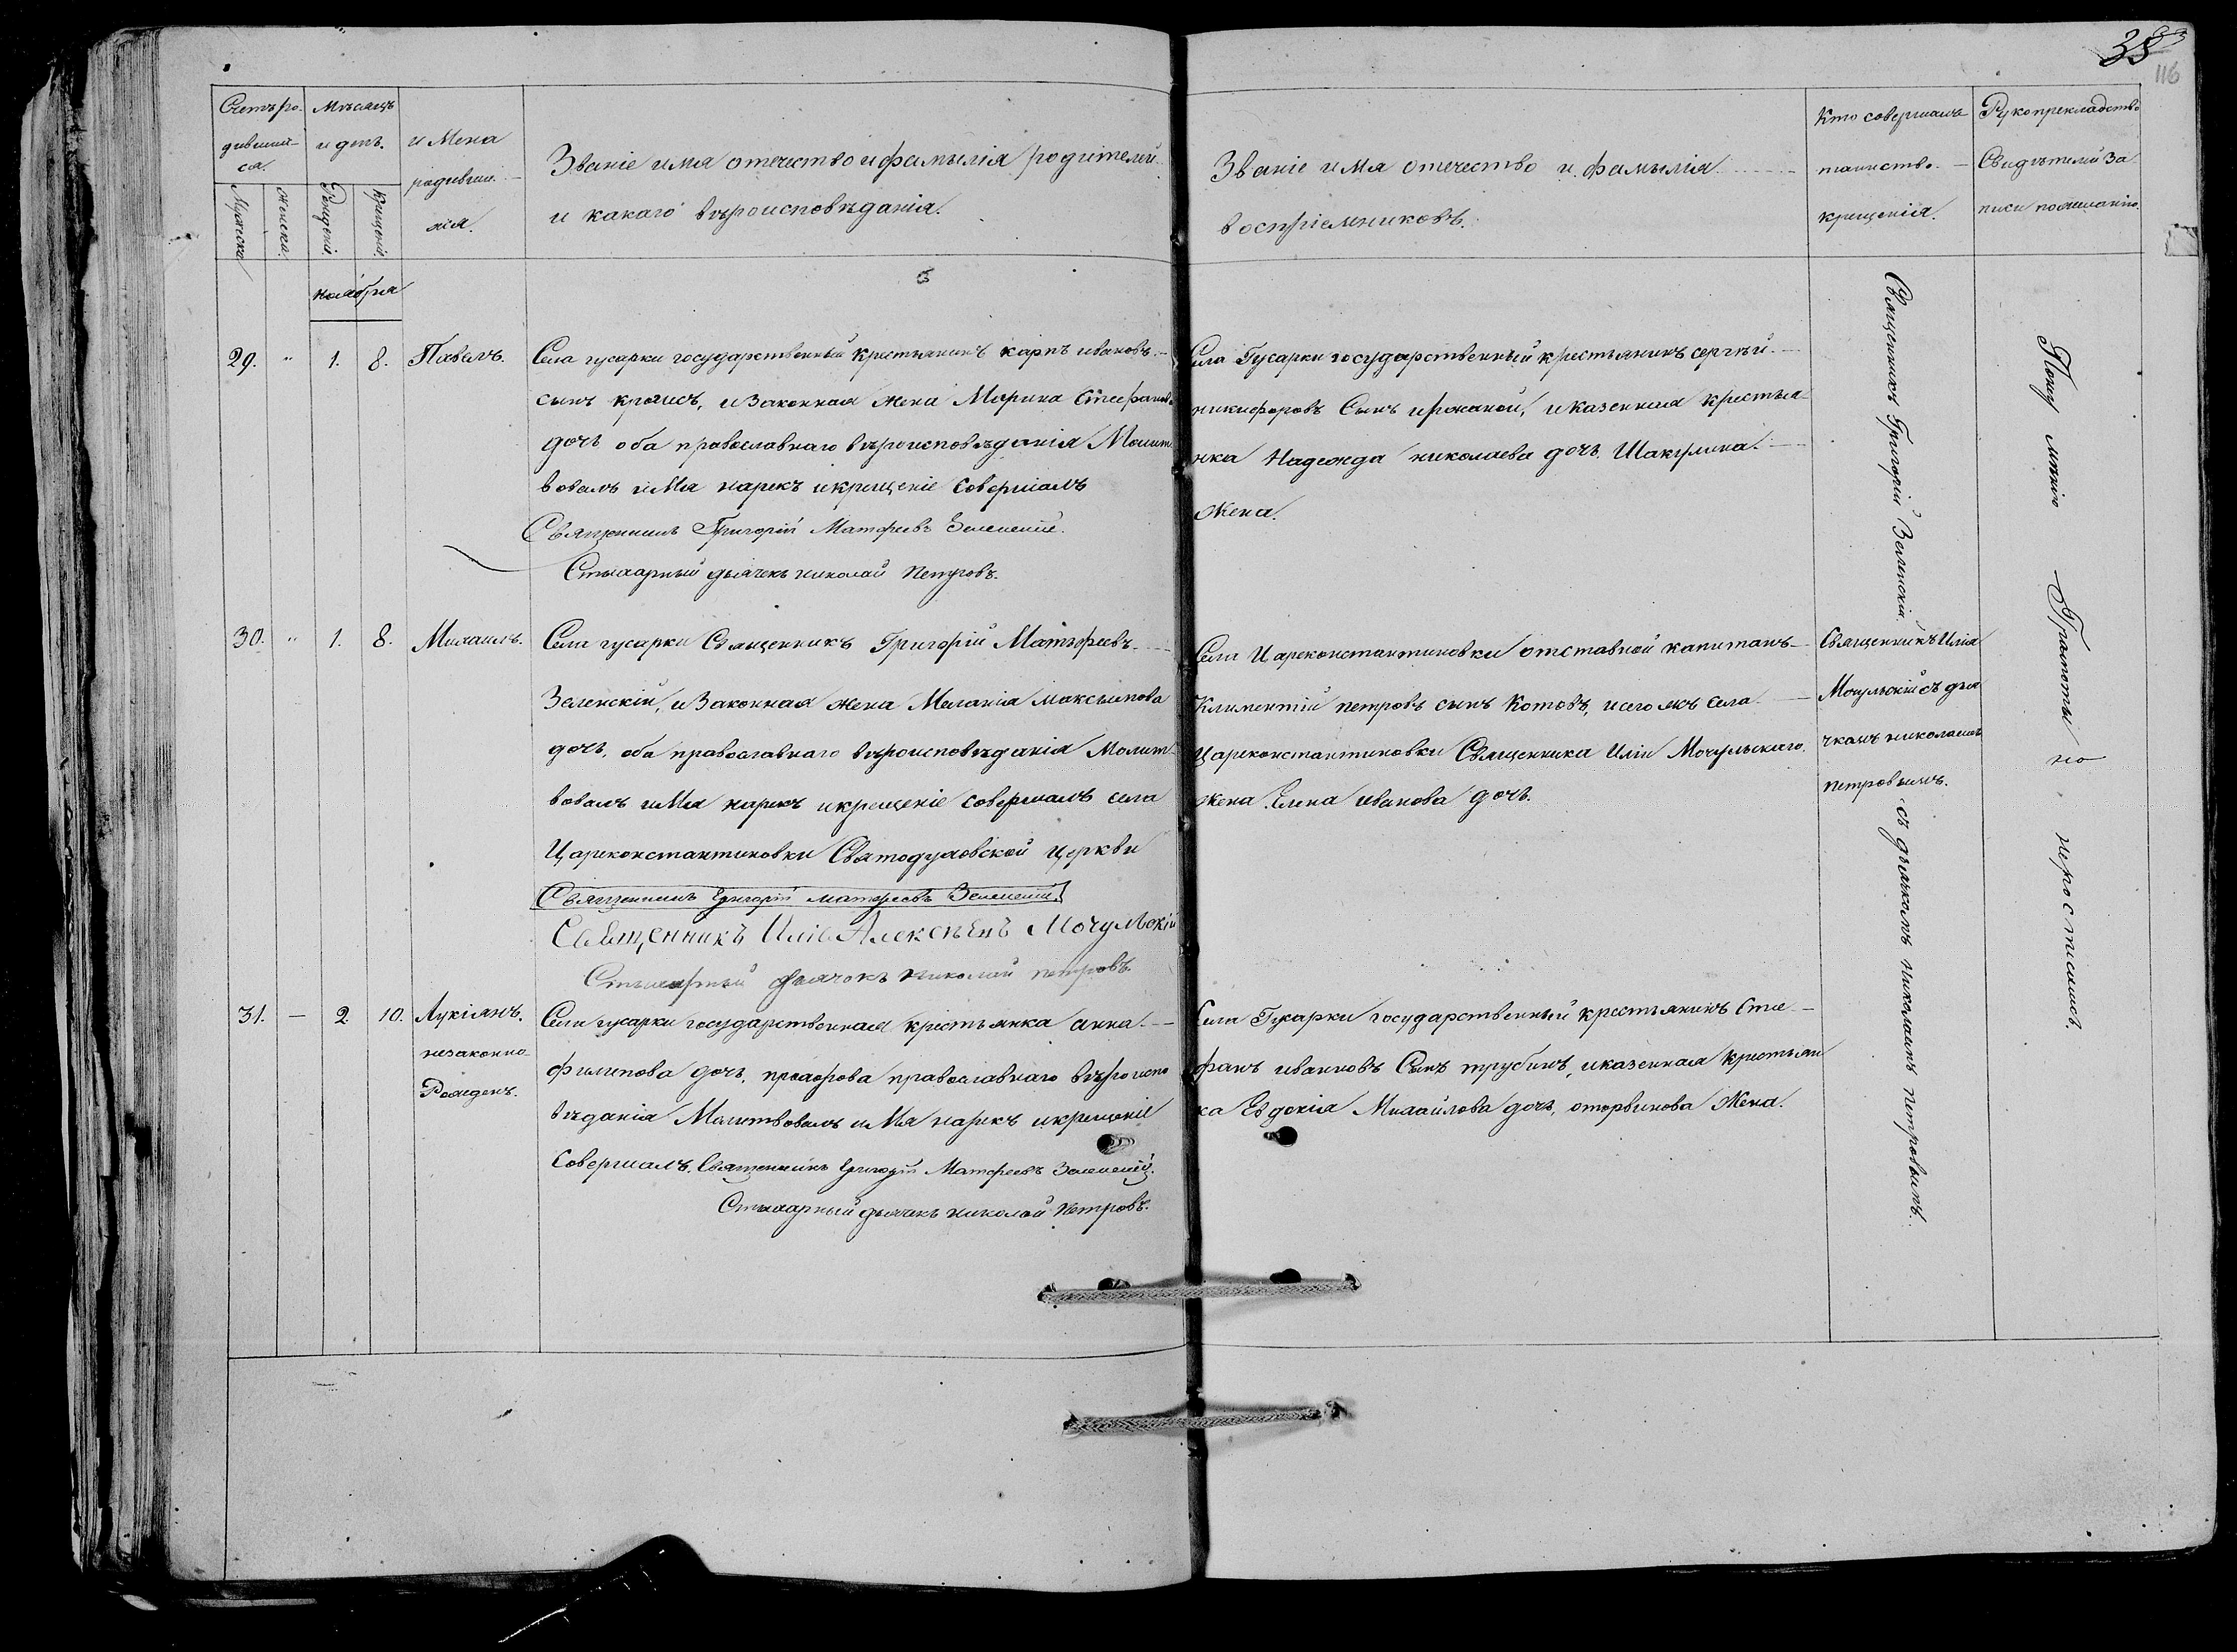 38
116
Счетъ ро-
дившый-
ся.
Мужска
женска.
Мѣсяцъ
и день.
Рожденіе.
Крещеніе.
и Мена
родивши-
хся.
Званіе имя отечество и фамылія родителей
и какаго вѣроисповѣданія.
Званіе имя отечество и фамылія
воспріемниковъ.
Кто совершалъ
таинство
крещенія.
Рукоприкладство
Свидѣтелей За
писи по желанію.
ноября
29. " 1. 8. Павелъ.
Села гусарки государственный крестьянинъ карпъ ивановъ
сынъ изаконная жена Марина Стефанова
дочь оба православнаго вѣроисповѣданія Молит
вовалъ имя нарекъ икрещеніе Совершалъ
Священникъ Григорій Матфеевъ Зеленскій.
Стыхарный дьячекъ николай Петровъ.
Села Гусарки государственный крестьянинъ сергѣй
никифоровъ Сынъ иржаной, иказенная крестья-
нка Надежда николаева дочь Шакулина
Жена.
Священникъ Григорій Зеленскій
съ дьячкомъ николаемъ петровымъ.
Грамоты не
30. " 1. 8. Михаилъ.
Села гусарки Священникъ Григорій Матфеевъ
Зеленскій, изаконная жена Меланія максымова
дочь, оба православнаго вѣроисповѣданія Молит-
вовалъ имя нарекъ икрещеніе совершалъ села
Цареконстантиновки Святодуховской Церкви
Священникъ Григорій матфеевъ Зеленскій
Священникъ Илія Алексѣевъ Мочульскій
Стыхарный дьячокъ николай петровъ.
Села Цареконстантиновки отставной капитанъ
Климентій петровъ сынъ Котовъ, исего жъ села
Цареконстантиновки Священника Иліи Мочульскаго
жена Елена иванова дочь.
Священникъ Илія
Мочульскій съ дья
чкомъ николаемъ
петровымъ.
31. — 2. 10. Лукіянъ.
незаконно-
Рожденъ.
Села гусарки государственная крістьянка анна
филипова дочь, прохорова православнаго вѣроиспо
вѣданія Молитвовалъ имя нарекъ икрещеніе
Совершалъ. Священникъ Григорій Матфеевъ Зеленскій.
Стыхарный дьячекъ николай Петровъ.
Села Гусарки государственный крестьянинъ Сте-
фанъ ивановъ Сынъ трубинъ, иказенная крестьян
ка Евдокія Михайлова дочь, оторвинова Жена.